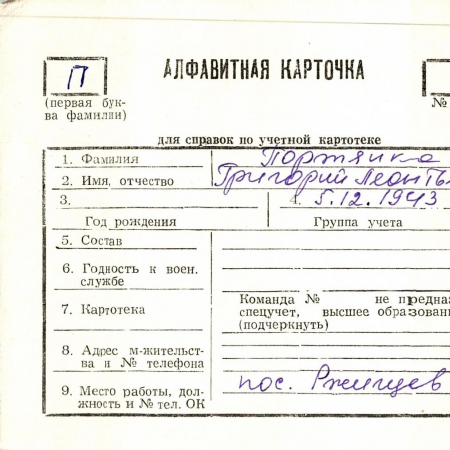 П
АЛФАВИТНАЯ КАРТОЧКА
(первая бук-
ва фамилии)
№
для справок по учетной картотеке
1. Фамилия Портянка
2. Имя, отчество Григорий Леонть
3. 4. 5.12.1943
Год рождения Группа учета
5. Состав
6. Годность к воен.
службе
7. Картотека
Команда № не предна
спецучет, высшее образован
(подчеркнуть)
8. Адрес м-жительст-
ва и № телефона
9. Место работы, дол-
жность и № тел. ОК
пос. Ржищев